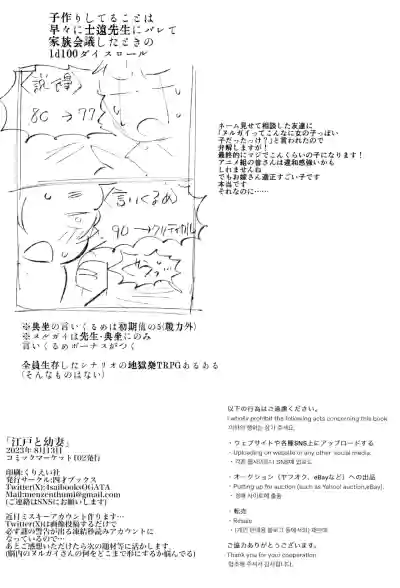 子作りしてることは
早々に士遠先生にバレて
家族会議したときの
1d100ダイスロール
説得
80→77
言いくるめ
90→クリティカル
ネーム見せて相談した友達に
「ヌルガイってこんなに女の子っぽい
子だったっけ？」と言われたので
弁解しますが！
最終的にマジでこんくらいの子になります！
アニメ組の皆さんは違和感強いかも
しれませんね
でもお嫁さん適正すごい子です
本当です
それなのに……
※典坐の言いくるめは初期値の5(脳力外)
※ヌルガイは先生・典坐にのみ
言いくるめボーナスがつく
全員生存したシナリオの地獄楽TRPGあるある
(そんなものはない)
「江戸と幼妻」
2023年 8月13日
コミックマーケット102発行
印刷:くりえい社
発行サークル:四才ブックス
Twitter(X):4saibooksOGATA
Mail:menzenthumi@gmail.com
(ご連絡はSNSにお願いします)
近日ミスキーアカウント作ります…
Twitter(X)は画像投稿するだけで
必ず謎の警告が出る凍結秒読みアカウントに
なっているので…
あとご感想いただけたら次の題材等に活かします。
(脳内のヌルガイさんの何をどこまで形にするか悩んでる)
以下の行為はご遠慮ください。
I wholly prohibit the following acts concerning this book.
이하의 행위는 삼가 주세요.
・ウェブサイトや各種SNS上にアップロードする
- Uploading on website or any other social media.
・オークション（ヤフオク、eBayなど）への出品
- Putting up for auction (such as Yahoo! auction,eBay).
- 경매 사이트에 출품
・転売
- Resale
ご協力ありがとうございます。
Thank you for your cooperation
협조해 주셔서 감사합니다.